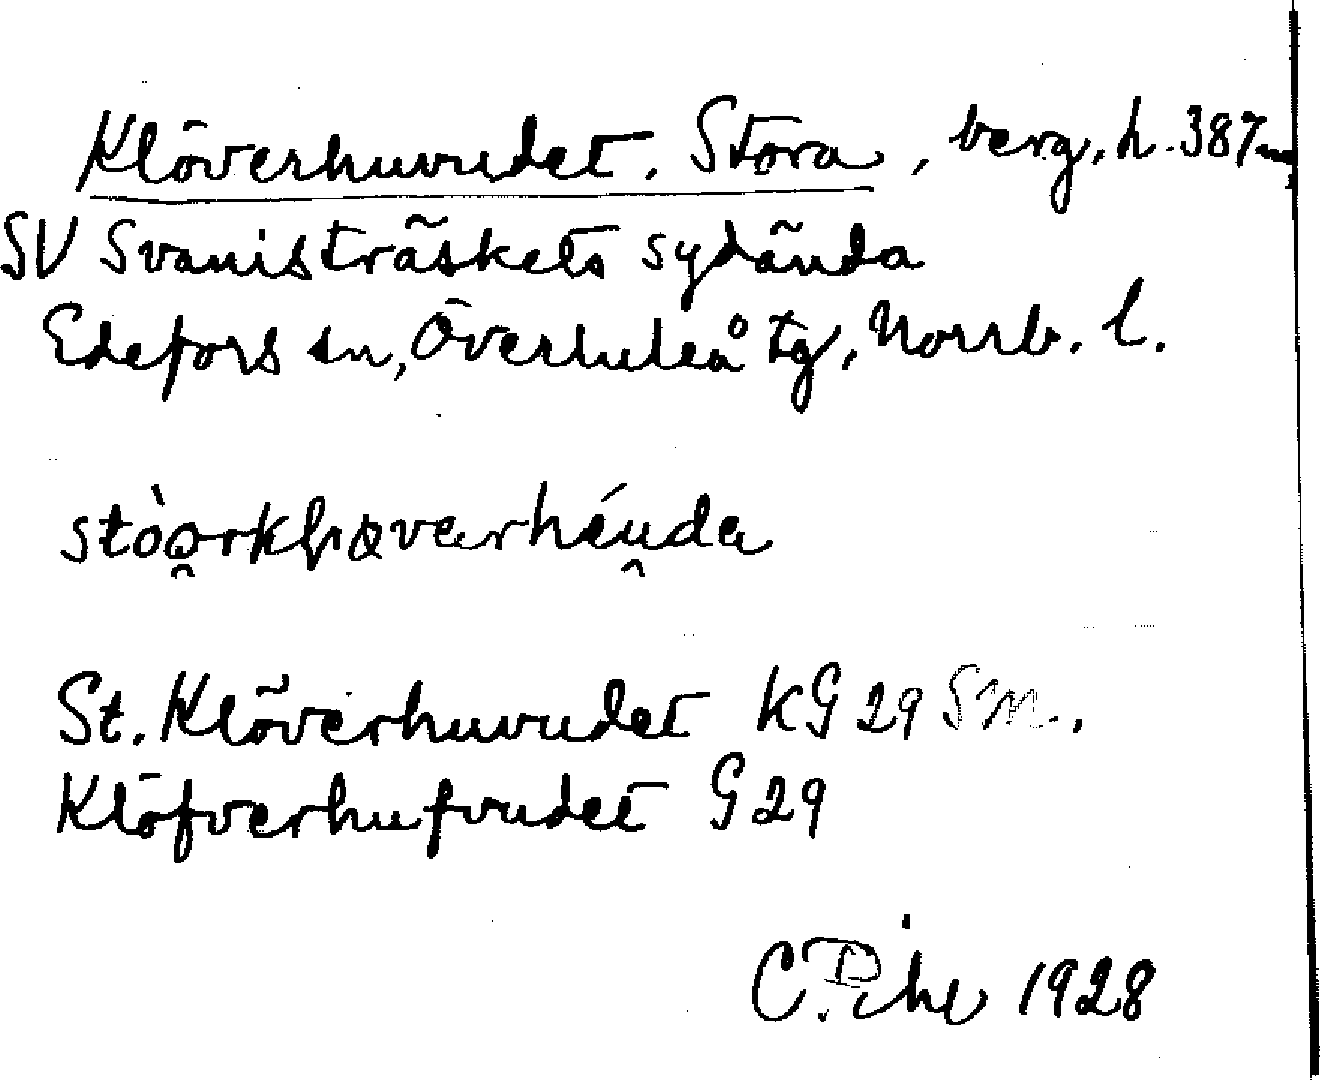 Klöverhuvudet, Stora, berg, h. 387 m
SV Svanisträskets sydända
Edefors sn, Överluleå tg, Norrb. l.
St. Klöverhuvudet KG 29 Sm.
Klöfverhufvudet G 29
C. Pihl 1928